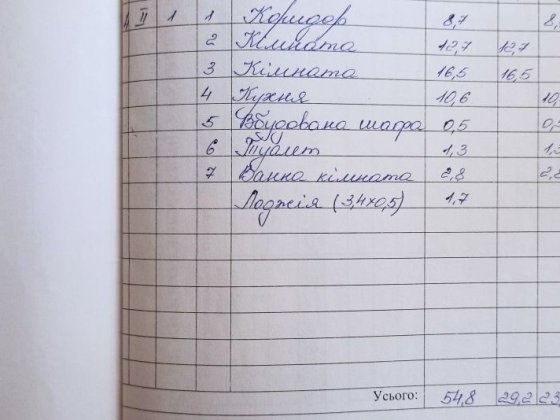 II 1 1 Коридор 8,7 8,
2 Кімната 12,7 12,7
3 Кімната 16,5 16,5
4 Кухня 10,6 10,
5 Вбудована шафа 0,5 0,5
6 Туалет 1,3 1,3
7 Ванна кімната 2,8 2,8
Лоджія (3,4х0,5) 1,7
Усього: 54,8 29,2 23